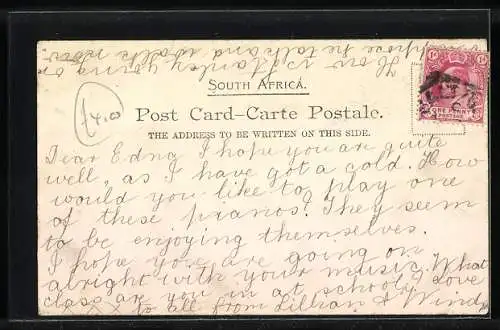 How is Stanley going on
suppose he talks and walks now
SOUTH AFRICA.
Post Card–Carte Postale.
THE ADDRESS TO BE WRITTEN ON THIS SIDE.
£4.0
1d 1d
ONE PENNY
POSTAGE
Dear Edna I hope you are quite
well, as I have got a cold. How
would you like to play one
of these pianos? They seem
to be enjoying themselves.
I hope you are going on
alright with your music. What
class are you in at school, Love
to all from Lillian & Windy